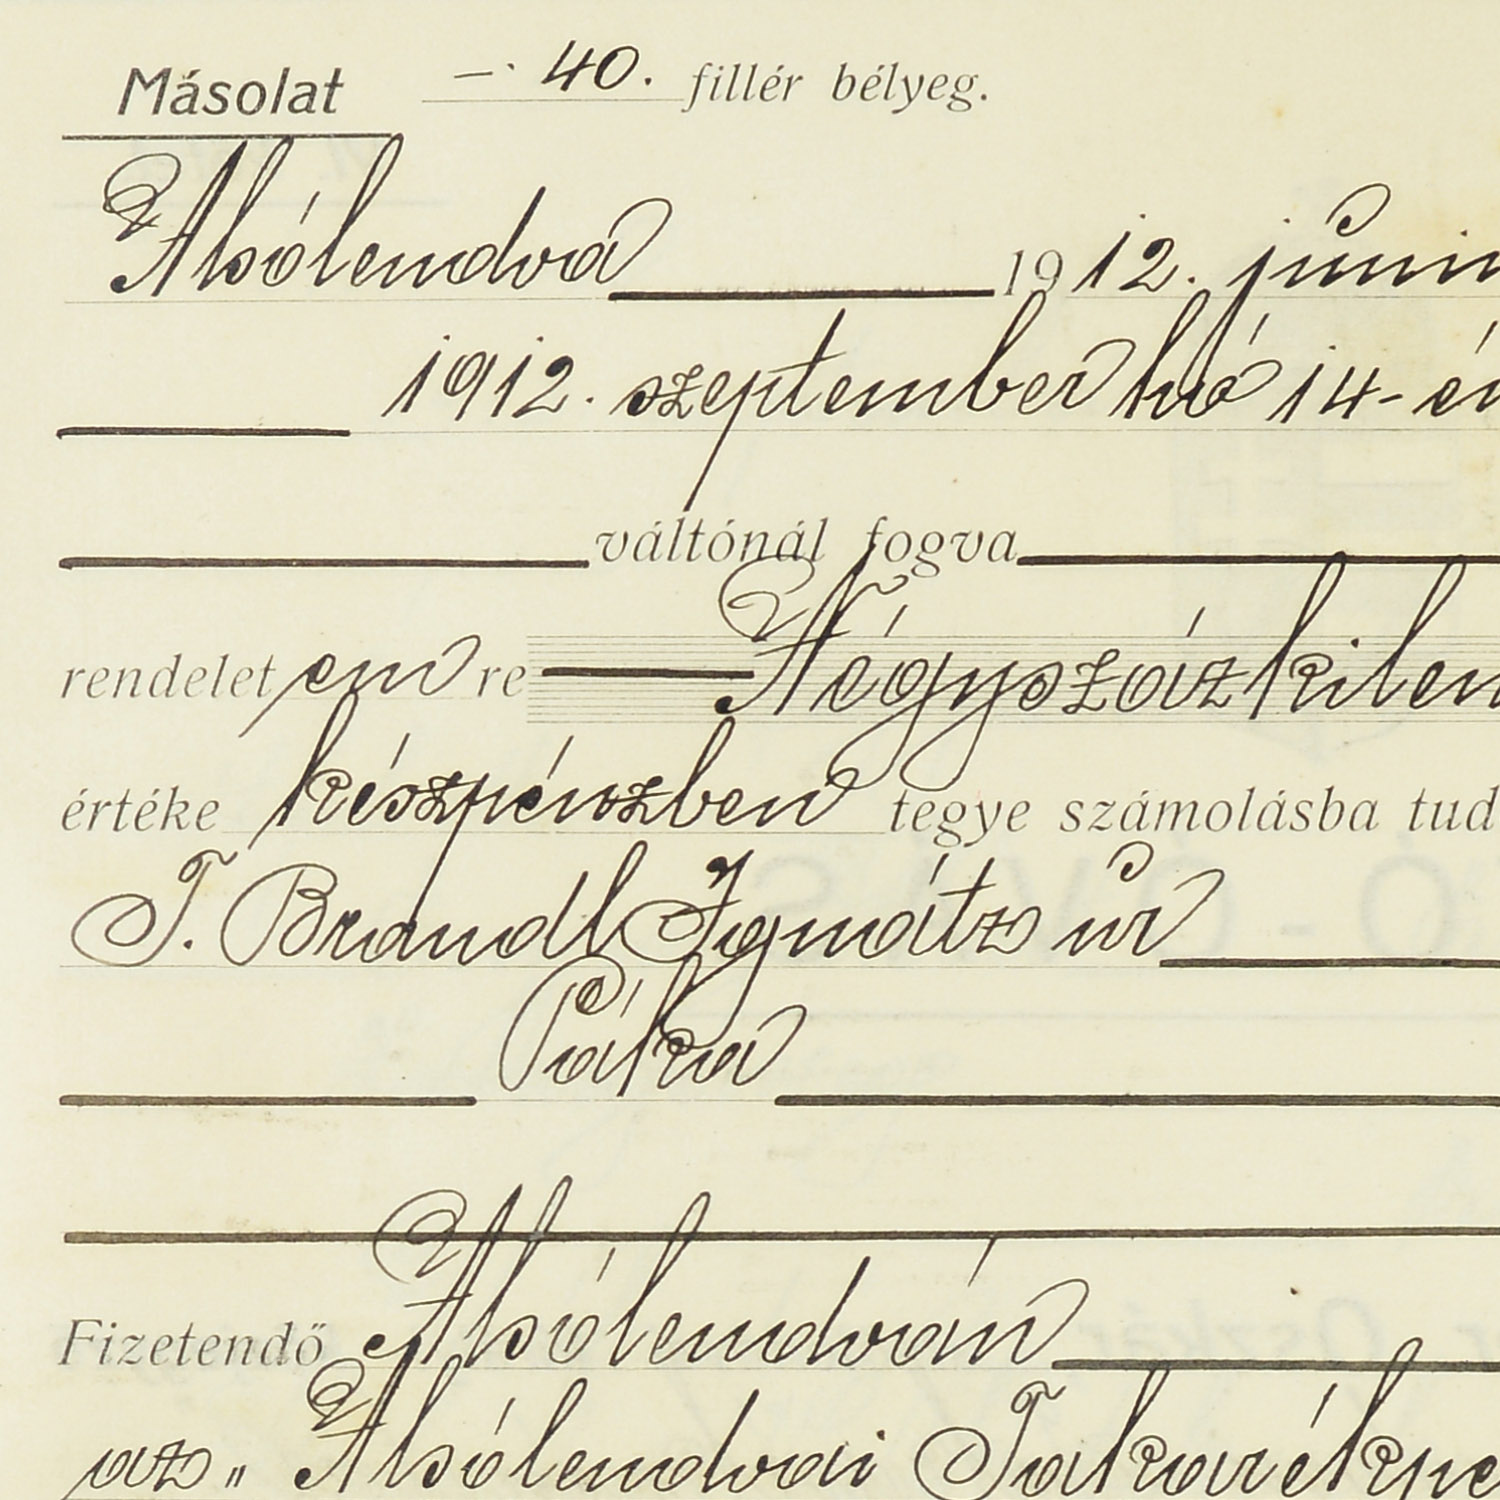 Másolat —· 40. fillér bélyeg.
Alsólendva 1912. júni
1912. szeptember hó 14-én
váltónál fogva
rendeletem re Négyszázkilen
értéke készpénzben tegye számolásba tud
T. Brandl Ignátz úr
Páka
Fizetendő Alsólendván
az „Alsólendvai Takarékpé